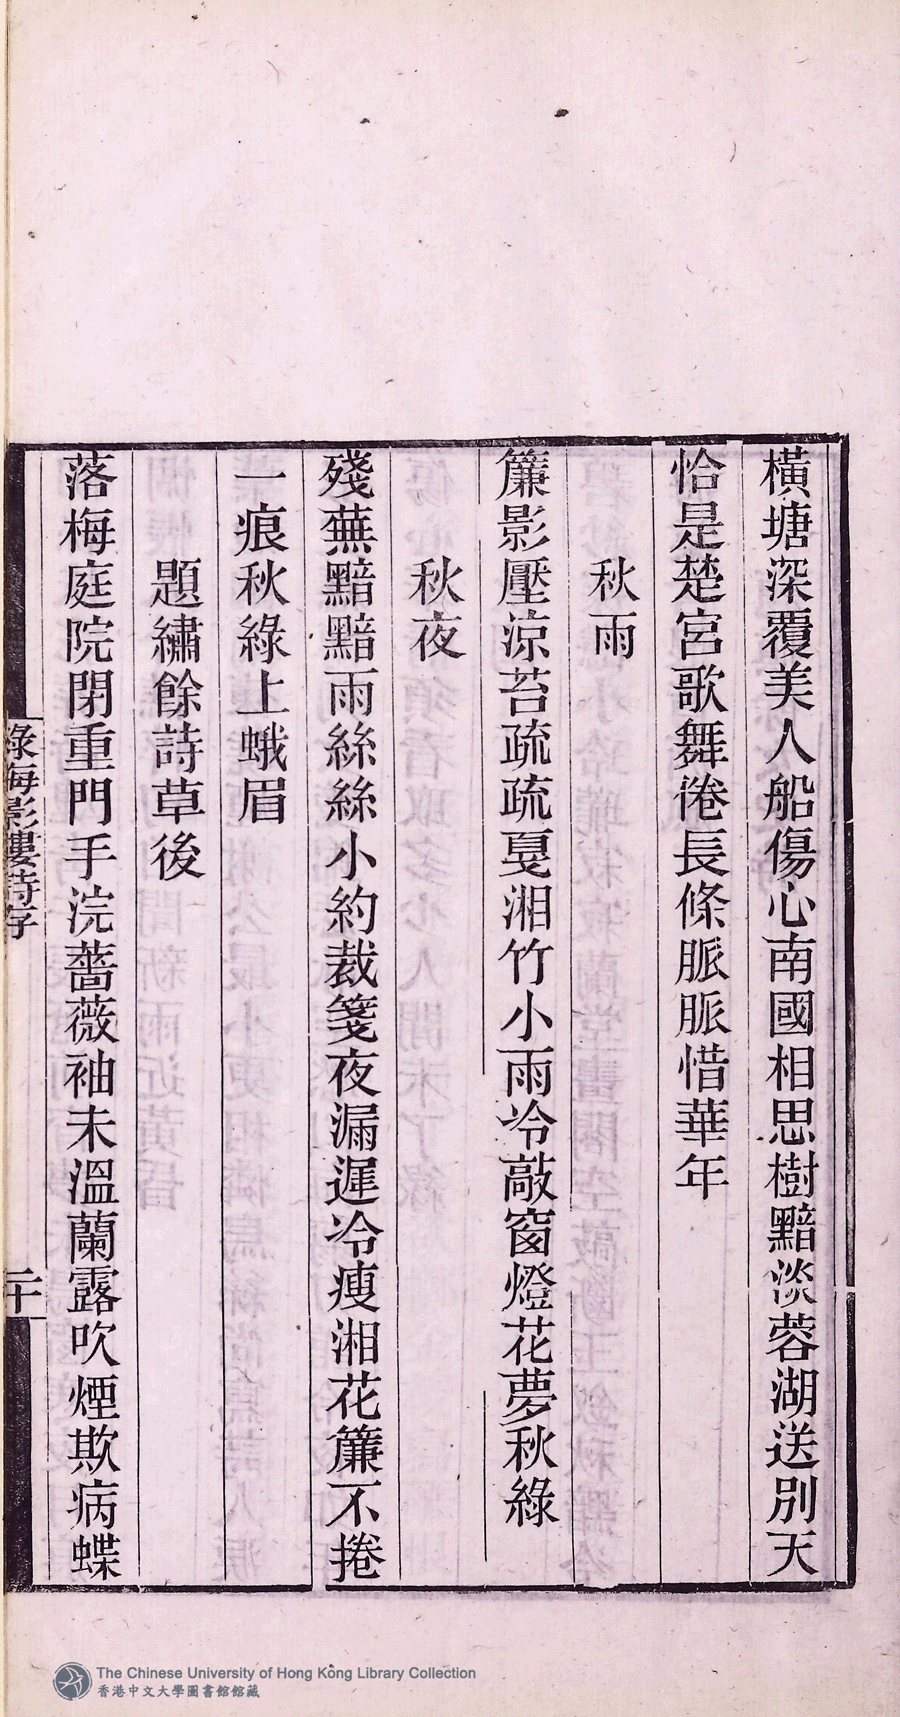 橫塘深覆美人船傷心南國相思樹黯淡蓉湖送別天
恰是楚宮歌舞倦長條脈脈惜華年
秋雨
簾影壓涼苔疏疏戛湘竹小雨冷敲窗燈花夢秋綠
秋夜
殘蕪黯黯雨絲絲小約裁箋夜漏遲冷瘦湘花簾不捲
一痕秋綠上蛾眉
題繡餘詩草後
落梅庭院閉重門手浣薔薇袖未溫蘭露吹煙欺病蝶
綠梅影樓詩存
二十
The Chinese University of Hong Kong Library Collection
香港中文大學圖書館館藏